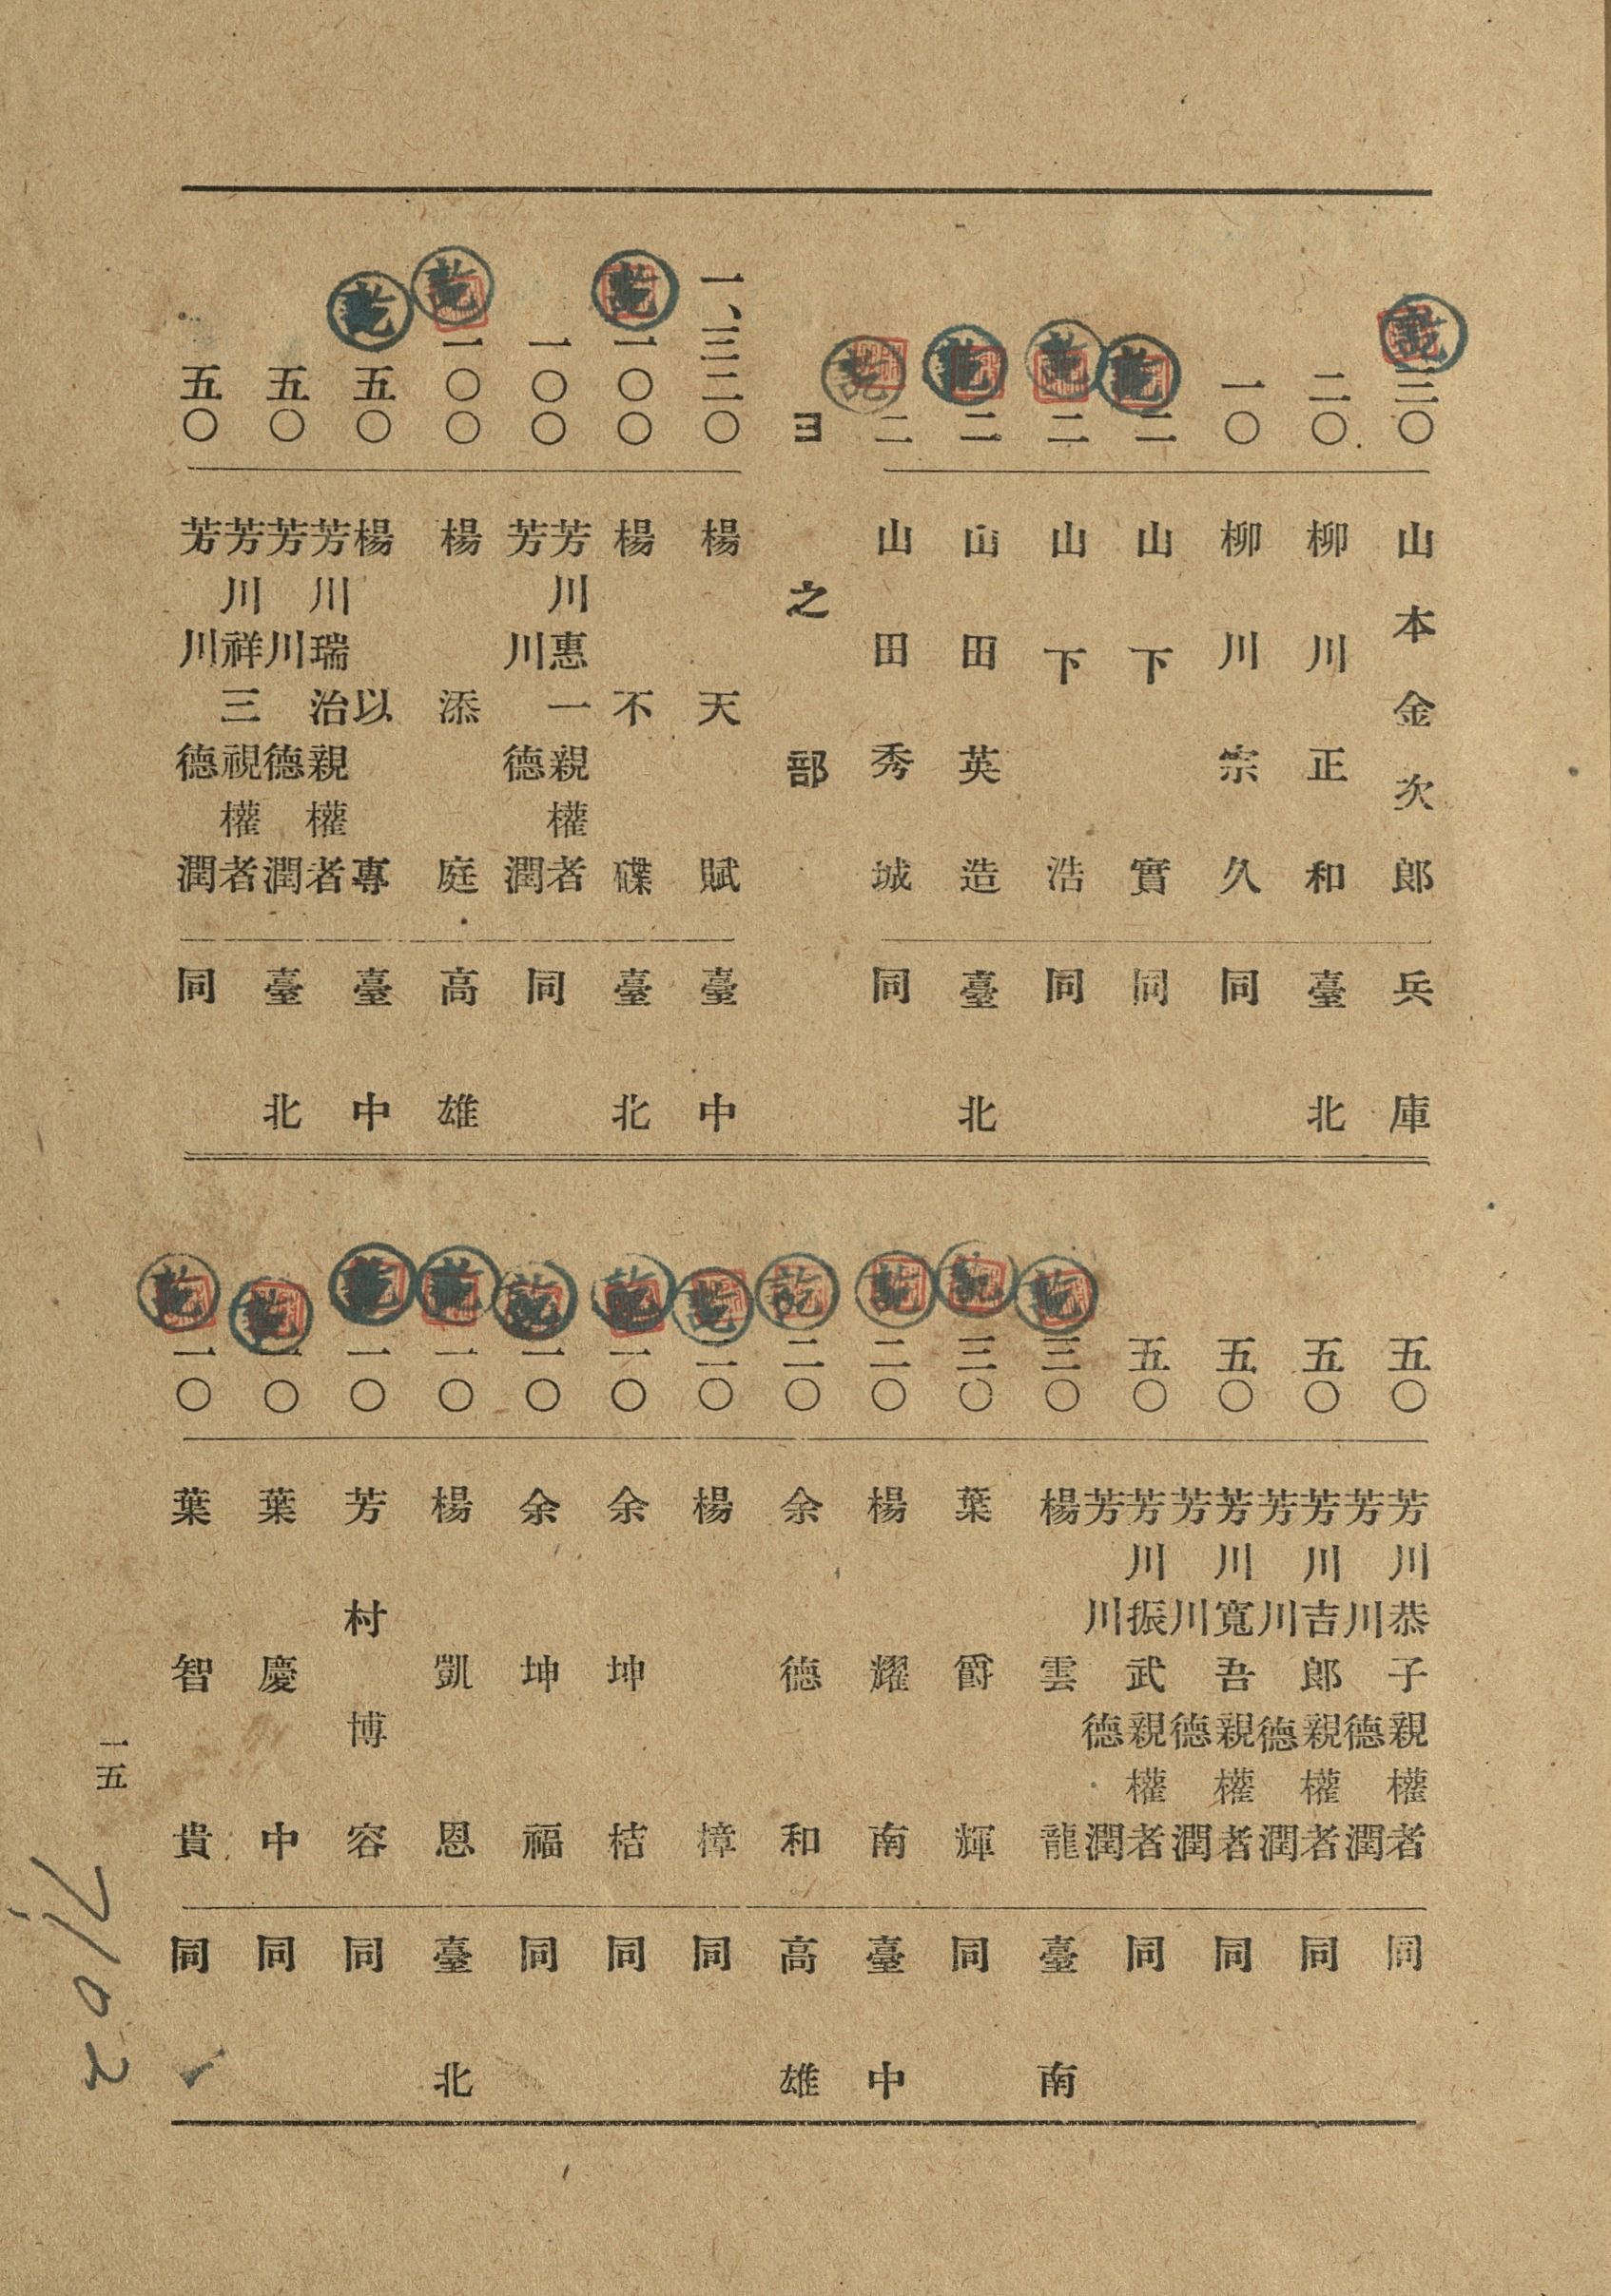 三〇 山本金次郎 兵庫
二〇 柳川正和 臺北
一〇 柳川宗久 同
二 山下實 同
二 山下浩 同
二 山田英造 臺北
二 山田秀城 同
ヨ之部
一、三二〇 楊天賦 臺中
一〇〇 楊不碟 臺北
一〇〇 芳川惠一親權者
芳川德潤 同
一〇〇 楊添庭 高雄
五〇 楊以專 臺中
五〇 芳川瑞治親權者
芳川德潤 臺北
五〇 芳川祥三視權者
芳川德潤 同
五〇 芳川恭子親權者
芳川德潤 同
五〇 芳川吉郎親權者
芳川德潤 同
五〇 芳川寬吾親權者
芳川德潤 同
五〇 芳川振武親權者
芳川德潤 同
三〇 楊雲龍 臺南
三〇 葉爵輝 同
二〇 楊耀南 臺中
二〇 余德和 高雄
二〇 楊樟 同
一〇 余坤桔 同
一〇 余坤福 同
一〇 楊凱恩 臺北
一〇 芳村博容 同
一〇 葉慶中 同
一〇 葉智貴 同
一五